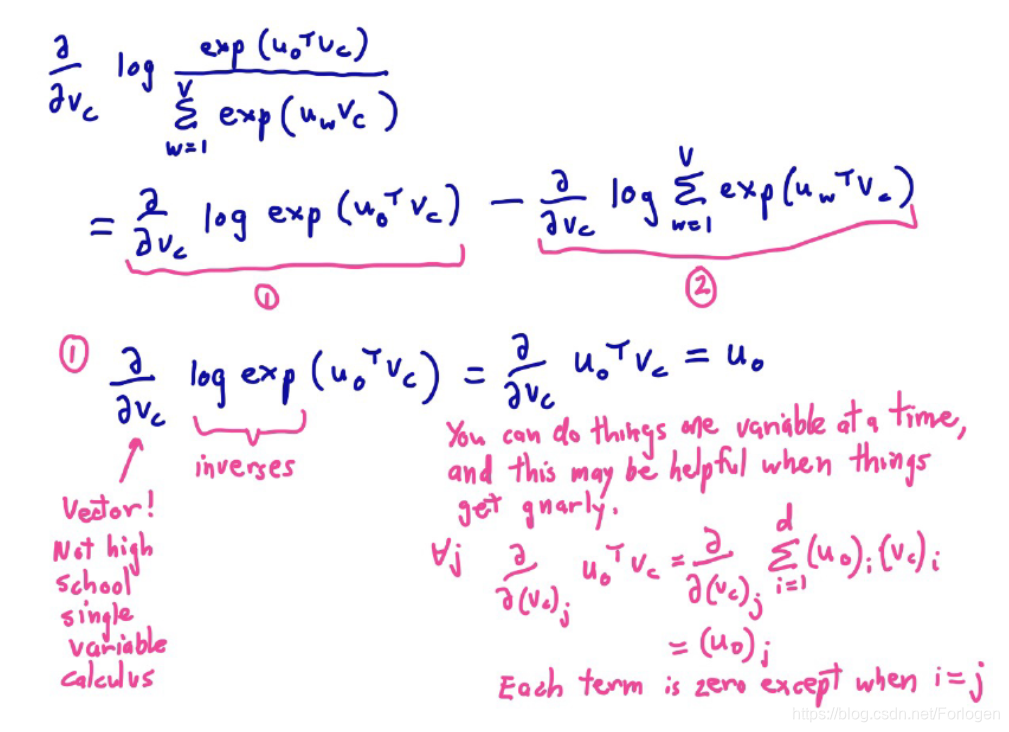 ∂/∂v_c log exp(u_o^T v_c) / ∑_{w=1}^{V} exp(u_w v_c)
= ∂/∂v_c log exp(u_o^T v_c) − ∂/∂v_c log ∑_{w=1}^{V} exp(u_w^T v_c)
① ②
① ∂/∂v_c log exp(u_o^T v_c) = ∂/∂v_c u_o^T v_c = u_o
inverses
Vector!
Not high
school
single
variable
calculus
You can do things one variable at a time,
and this may be helpful when things
get gnarly.
∀j ∂/∂(v_c)_j u_o^T v_c = ∂/∂(v_c)_j ∑_{i=1}^{d} (u_o)_i (v_c)_i
= (u_o)_j
Each term is zero except when i=j
https://blog.csdn.net/Forlogen